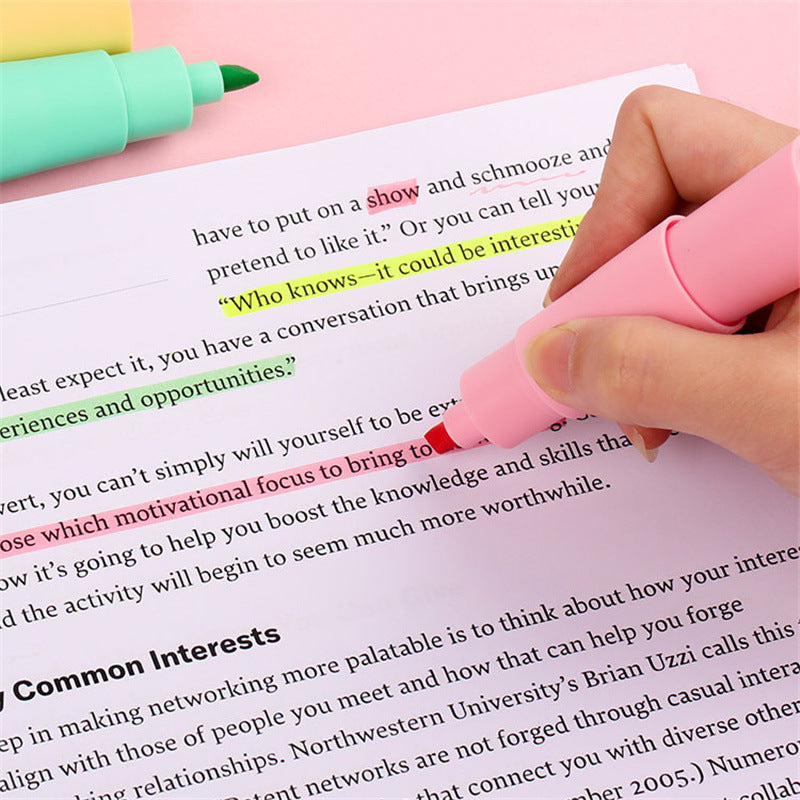 have to put on a show and schmooze and
pretend to like it.” Or you can tell your
“Who knows—it could be interesti
least expect it, you have a conversation that brings up
eriences and opportunities.”
vert, you can’t simply will yourself to be ex
ose which motivational focus to bring to
ow it’s going to help you boost the knowledge and skills tha
d the activity will begin to seem much more worthwhile.
y Common Interests
ep in making networking more palatable is to think about how your interes
align with those of people you meet and how that can help you forge
king relationships. Northwestern University’s Brian Uzzi calls this
Potent networks are not forged through casual intera
that connect you with diverse other
mber 2005.) Numero
collab